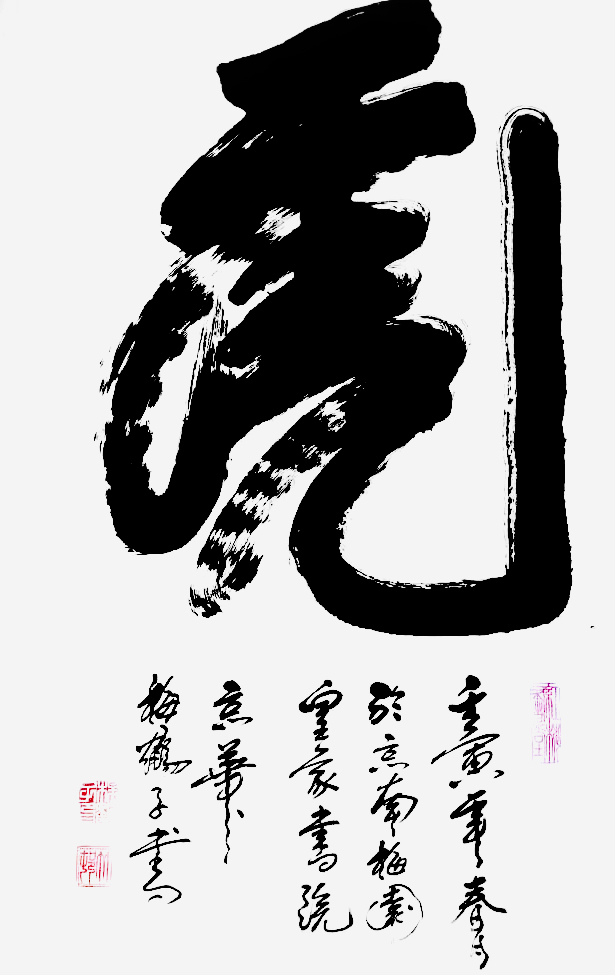 虎
壬寅年春月
於京南梅園
皇家書院
京華
梅鶴子書